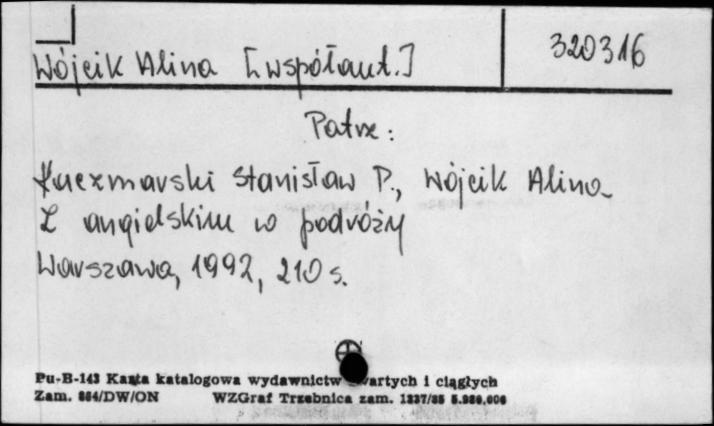 Wójcik Alina [współaut.]
320316
Patrz:
Kaczmarski Stanisław P., Wójcik Alina
Z angielskim w podróży
Warszawa, 1992, 210 s.
Pu-B-143 Karta katalogowa wydawnictw zwartych i ciągłych
Zam. 864/DW/ON WZGraf Trzebnica zam. 1337/85 5.980,000